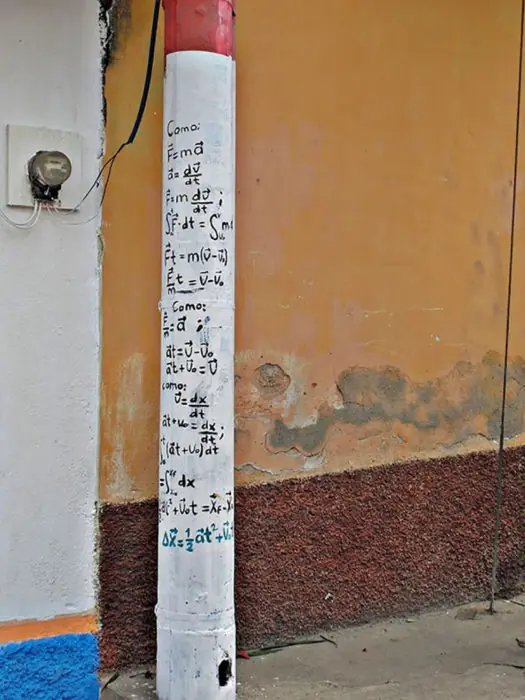 Como:
F⃗=ma⃗
a⃗=dv⃗/dt
F⃗=m dv⃗/dt ;
∫F⃗·dt=∫m
F⃗t=m(v⃗-v⃗₀)
F⃗/m t=v⃗-v⃗₀
Como:
F⃗/m=a⃗ ;
a⃗t=v⃗-v⃗₀
a⃗t+v⃗₀=v⃗
como:
v⃗=dx⃗/dt
a⃗t+v₀=dx⃗/dt ;
∫(a⃗t+v₀)dt
=∫dx
t²+v⃗₀t=x⃗f-x⃗
Δx⃗=½a⃗t²+v⃗₀t